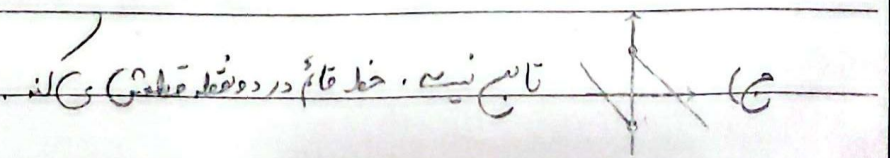 ج) تابع نیست. خط قائم در دو نقطه قطعش می کند.